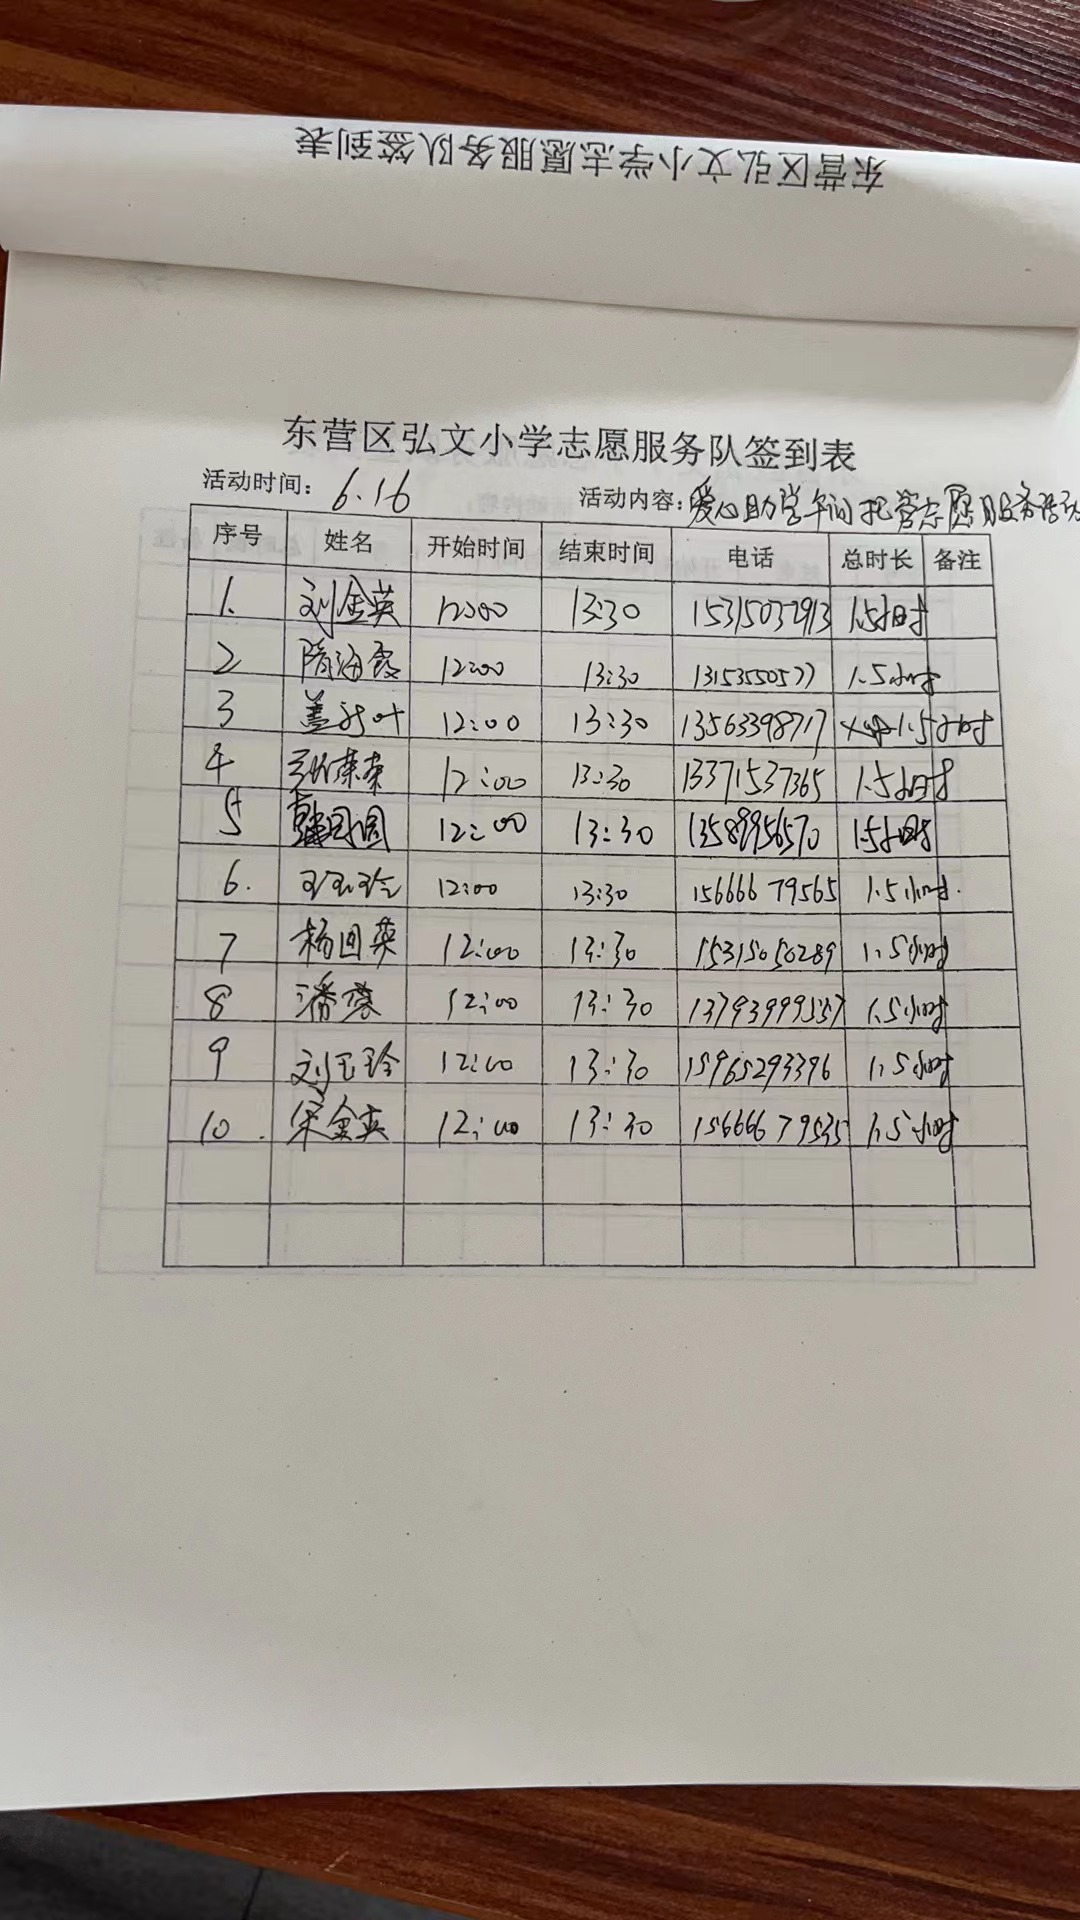 东营区弘文小学志愿服务队签到表
东营区弘文小学志愿服务队签到表
活动时间: 6.16 活动内容:爱心助学午间托管志愿服务活动
序号 姓名 开始时间 结束时间 电话 总时长 备注
1. 刘金英 12:00 13:30 15315032913 1.5小时
2 隋海霞 12:00 13:30 13153550577 1.5小时
3 盖 叶 12:00 13:30 13563398717 1.5小时
4 张荣荣 12:00 13:30 13371537365 1.5小时
5 韩圆圆 12:00 13:30 13589956570 1.5小时
6. 王玉玲 12:00 13:30 15666679565 1.5小时.
7 杨回英 12:00 13:30 15315050289 1.5小时
8 潘 12:00 13:30 13793999557 1.5小时
9 刘玉玲 12:00 13:30 15965293396 1.5小时
10. 宋金英 12:00 13:30 15666679535 1.5小时